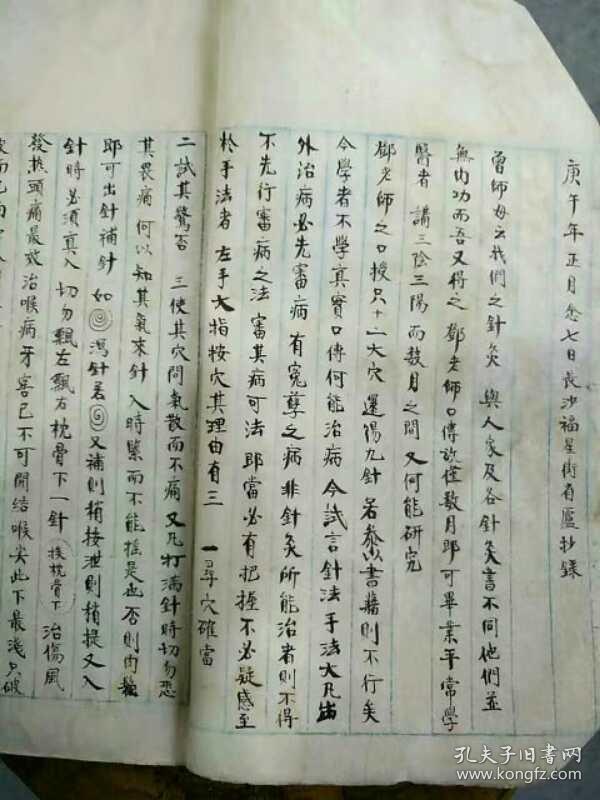 庚午年正月念七日長沙福星街有廬抄錄
曾師母云我們之針灸 與人家及各針灸書不同他們並
無内功而吾又得之 鄧老師口傳說僅数月即可畢業平常學
醫者 講三陰三陽而数月之間 又何能研究
鄧老師之口授只十二大穴 還陽九針 若叅以書籍則不行矣
今學者不學真實口傳何能治病 今試言針法手法大凡出
外治病必先審病 有冤孽之病非針灸所能治者則不得
不先行審病之法 審其病可法 即當必有把握 不必疑惑至
於手法者 左手大指按穴其理由有三 一尋穴確當
二試其驚否 三使其穴間氣散而不痛 又凡打滿針時切勿恐
其畏痛 何以知其氣來針 入時緊而不能搖是也 否則内
即可出針補針 如 瀉針若 又補則稍按泄則稍提 又入
針時必須真入 切勿飄左飄右 枕骨下一針 挨枕骨下 治傷風
發热頭痛最效 治喉病牙害已不可開結喉尖此下最淺只破
孔夫子旧书网
www.kongfz.com